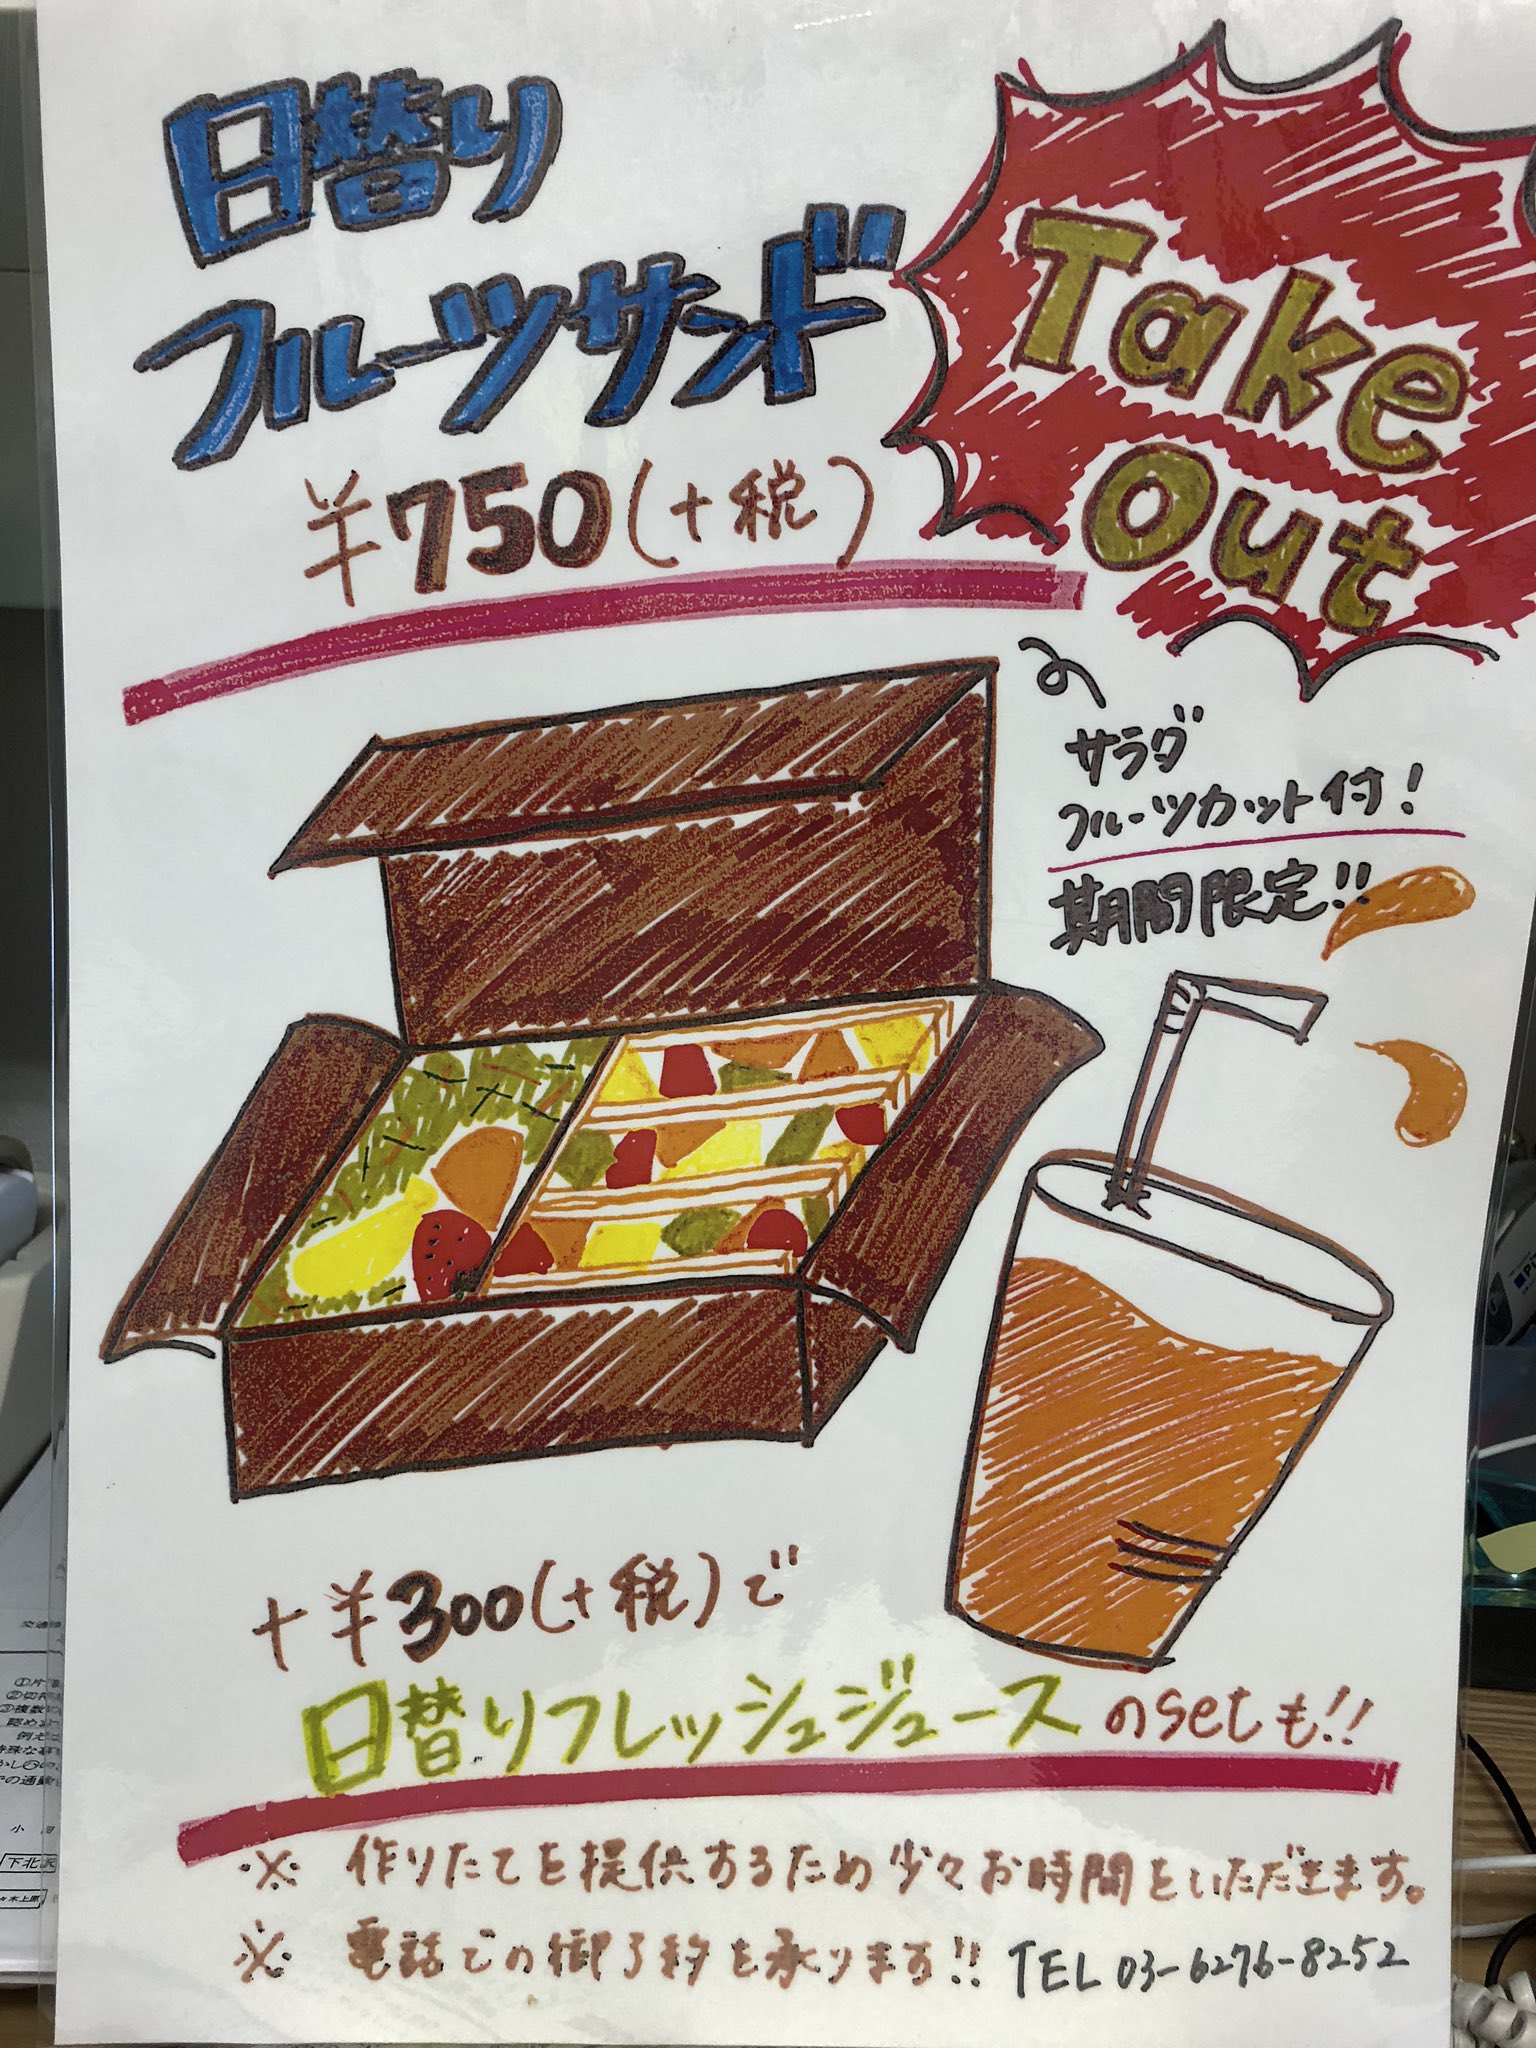 日替り
フルーツサンド
¥750(+税)
Take
Out
サラダ
フルーツカット付!
期間限定!!
+¥300(+税)で
日替りフレッシュジュースのsetも!!
※ 作りたてを提供するため少々お時間をいただきます。
※ 電話での御予約を承ります!! TEL 03-6276-8252
小田
下北沢
木上原